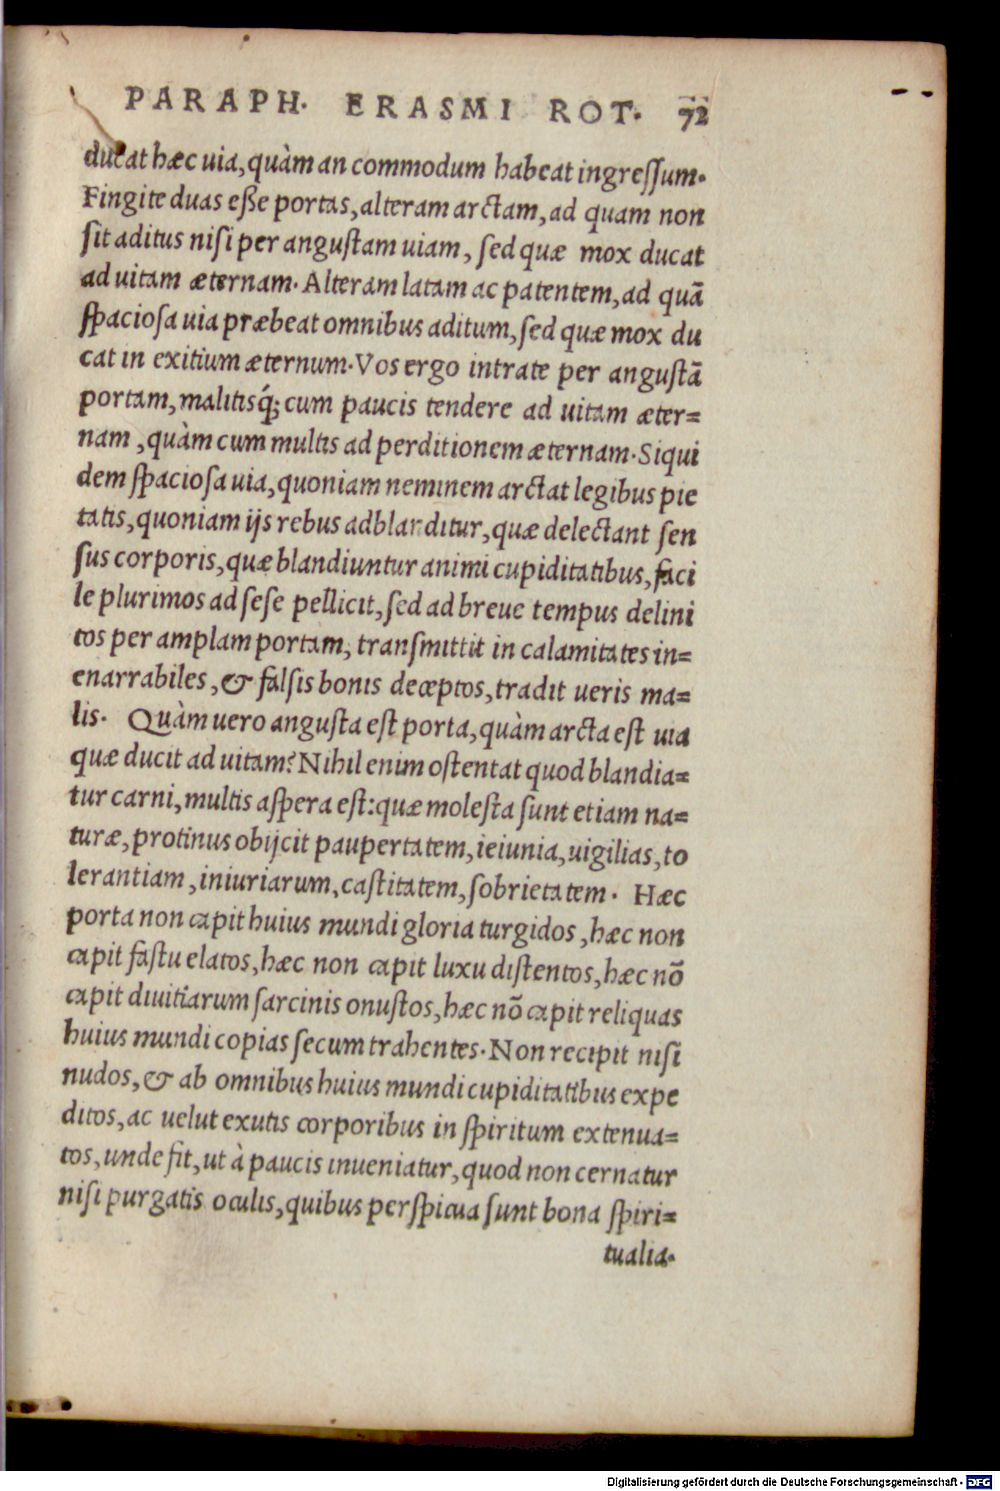 PARAPH. ERASMI ROT. 72
ducat hæc uia, quàm an commodum habeat ingreſſum.
Fingite duas eſſe portas, alteram arctam, ad quam non
ſit aditus niſi per anguſtam uiam, ſed quæ mox ducat
ad uitam æternam. Alteram latam ac patentem, ad quã
ſpacioſa uia præbeat omnibus aditum, ſed quæ mox du
cat in exitium æternum. Vos ergo intrate per anguſtã
portam, malitisq́; cum paucis tendere ad uitam æter=
nam, quàm cum multis ad perditionem æternam. Siqui
dem ſpacioſa uia, quoniam neminem arctat legibus pie
tatis, quoniam ijs rebus adblanditur, quæ delectant ſen
ſus corporis, quæ blandiuntur animi cupiditatibus, faci
le plurimos ad ſeſe pellicit, ſed ad breue tempus delini
tos per amplam portam, tranſmittit in calamitates in=
enarrabiles, & falſis bonis deceptos, tradit ueris ma=
lis. Quàm uero anguſta eſt porta, quàm arcta eſt uia
quæ ducit ad uitam? Nihil enim oſtentat quod blandia=
tur carni, multis aſpera eſt: quæ moleſta ſunt etiam na=
turæ, protinus obijcit paupertatem, ieiunia, uigilias, to
lerantiam, iniuriarum, caſtitatem, ſobrietatem. Hæc
porta non capit huius mundi gloria turgidos, hæc non
capit faſtu elatos, hæc non capit luxu diſtentos, hæc nõ
capit diuitiarum ſarcinis onuſtos, hæc nõ capit reliquas
huius mundi copias ſecum trahentes. Non recipit niſi
nudos, & ab omnibus huius mundi cupiditatibus expe
ditos, ac uelut exutis corporibus in ſpiritum extenua=
tos, unde fit, ut à paucis inueniatur, quod non cernatur
niſi purgatis oculis, quibus perſpicua ſunt bona ſpiri=
tualia.
Digitalisierung gefördert durch die Deutsche Forschungsgemeinschaft - DFG